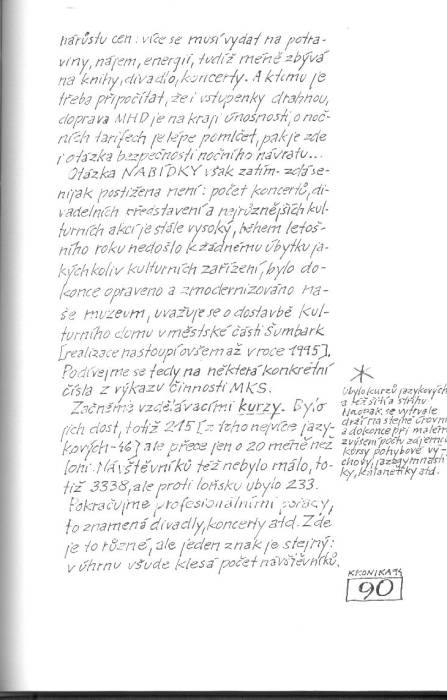 nárůstu cen: více se musí vydat na potra-
viny, nájem, energii, tudíž méně zbývá
na knihy, divadlo, koncerty. A k tomu je
třeba připočítat, že i vstupenky drahnou,
doprava MHD je na kraji únosnosti, o noč-
ních tarifech je lépe pomlčet, pak je zde
i otázka bezpečnosti nočního návratu...
Otázka NABÍDKY však zatím-zdá se-
nijak postižena není: počet koncertů, di-
vadelních představení a nejrůznějších kul-
turních akcí je stále vysoký, během letoš-
ního roku nedošlo k žádnému úbytku ja-
kýchkoliv kulturních zařízení, bylo do-
konce opraveno a zmodernizováno na-
še muzeum, uvažuje se o dostavbě kul-
turního domu v městské části Šumbark
[realizace nastoupí ovšem až v roce 1995].
Podívejme se tedy na některá konkrétní
čísla z výkazu činnosti MKS.
Začněme vzdělávacími kurzy. Bylo
jich dost, totiž 215 [z toho nejvíce jazy-
kových-46] ale přece jen o 20 méně než
loni. Návštěvníků též nebylo málo, to-
tiž 3338, ale proti loňsku ubylo 233.
Pokračujme profesionálními pořady,
to znamená divadly, koncerty atd. Zde
je to různé, ale jeden znak je stejný:
v úhrnu všude klesá počet návštěvníků.
*
Ubylo kurzů jazykových
a též šití a střihu
Naopak se vytrvale
drží na stejné úrovni
a dokonce při malém
zvýšení počtu zájemců
kursy pohybové vý-
chovy, jazzgymnasti-
ky, kalanetiky atd.
KRONIKA 94
90